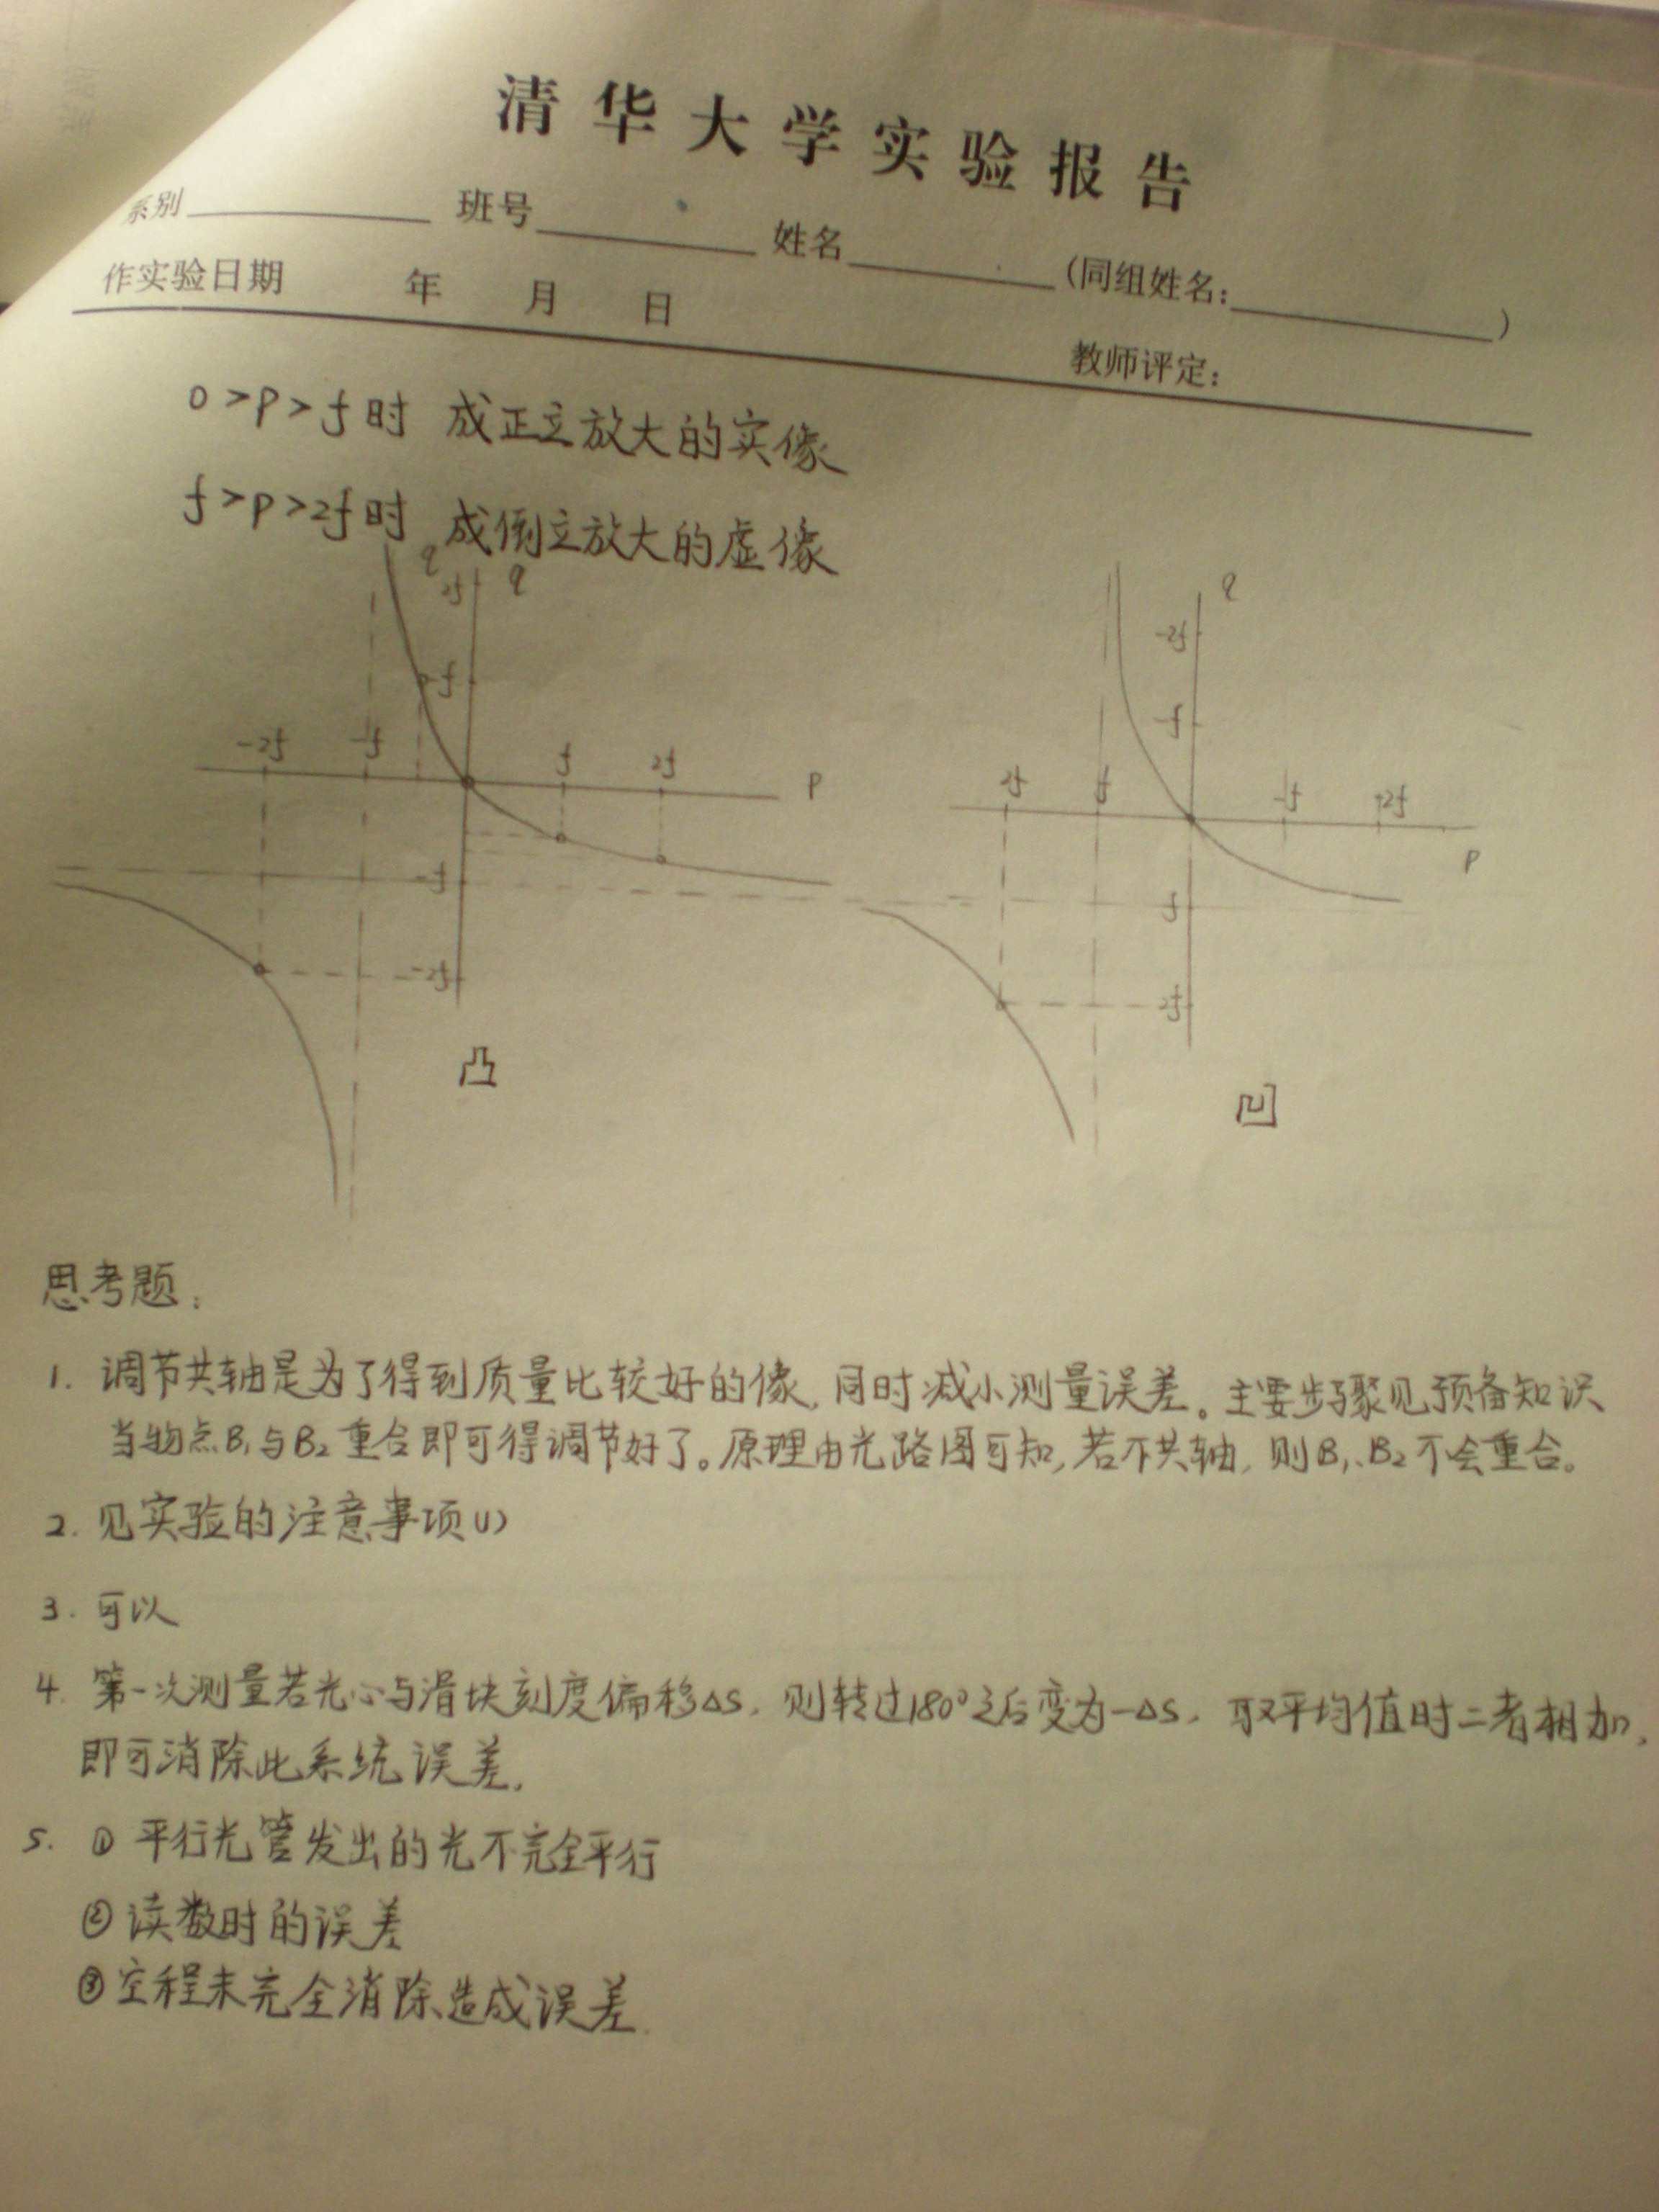 清华大学实验报告
系别 班号 姓名 (同组姓名: )
作实验日期 年 月 日
教师评定:
0>p>f时 成正立放大的实像
f>p>2f时 成倒立放大的虚像
q
2f q
f
-2f -f f 2f p
-f
-2f
凸
q
-2f
-f
2f f -f -2f
p
f
2f
凹
思考题:
1. 调节共轴是为了得到质量比较好的像,同时减小测量误差。主要步骤见预备知识
当物点B₁与B₂重合即可得调节好了。原理由光路图可知,若不共轴,则B₁、B₂不会重合。
2. 见实验的注意事项(1)
3. 可以
4. 第一次测量若光心与滑块刻度偏移△S,则转过180°之后变为-△S,取平均值时二者相加,
即可消除此系统误差.
5. ① 平行光管发出的光不完全平行
② 读数时的误差
③ 空程未完全消除造成误差.